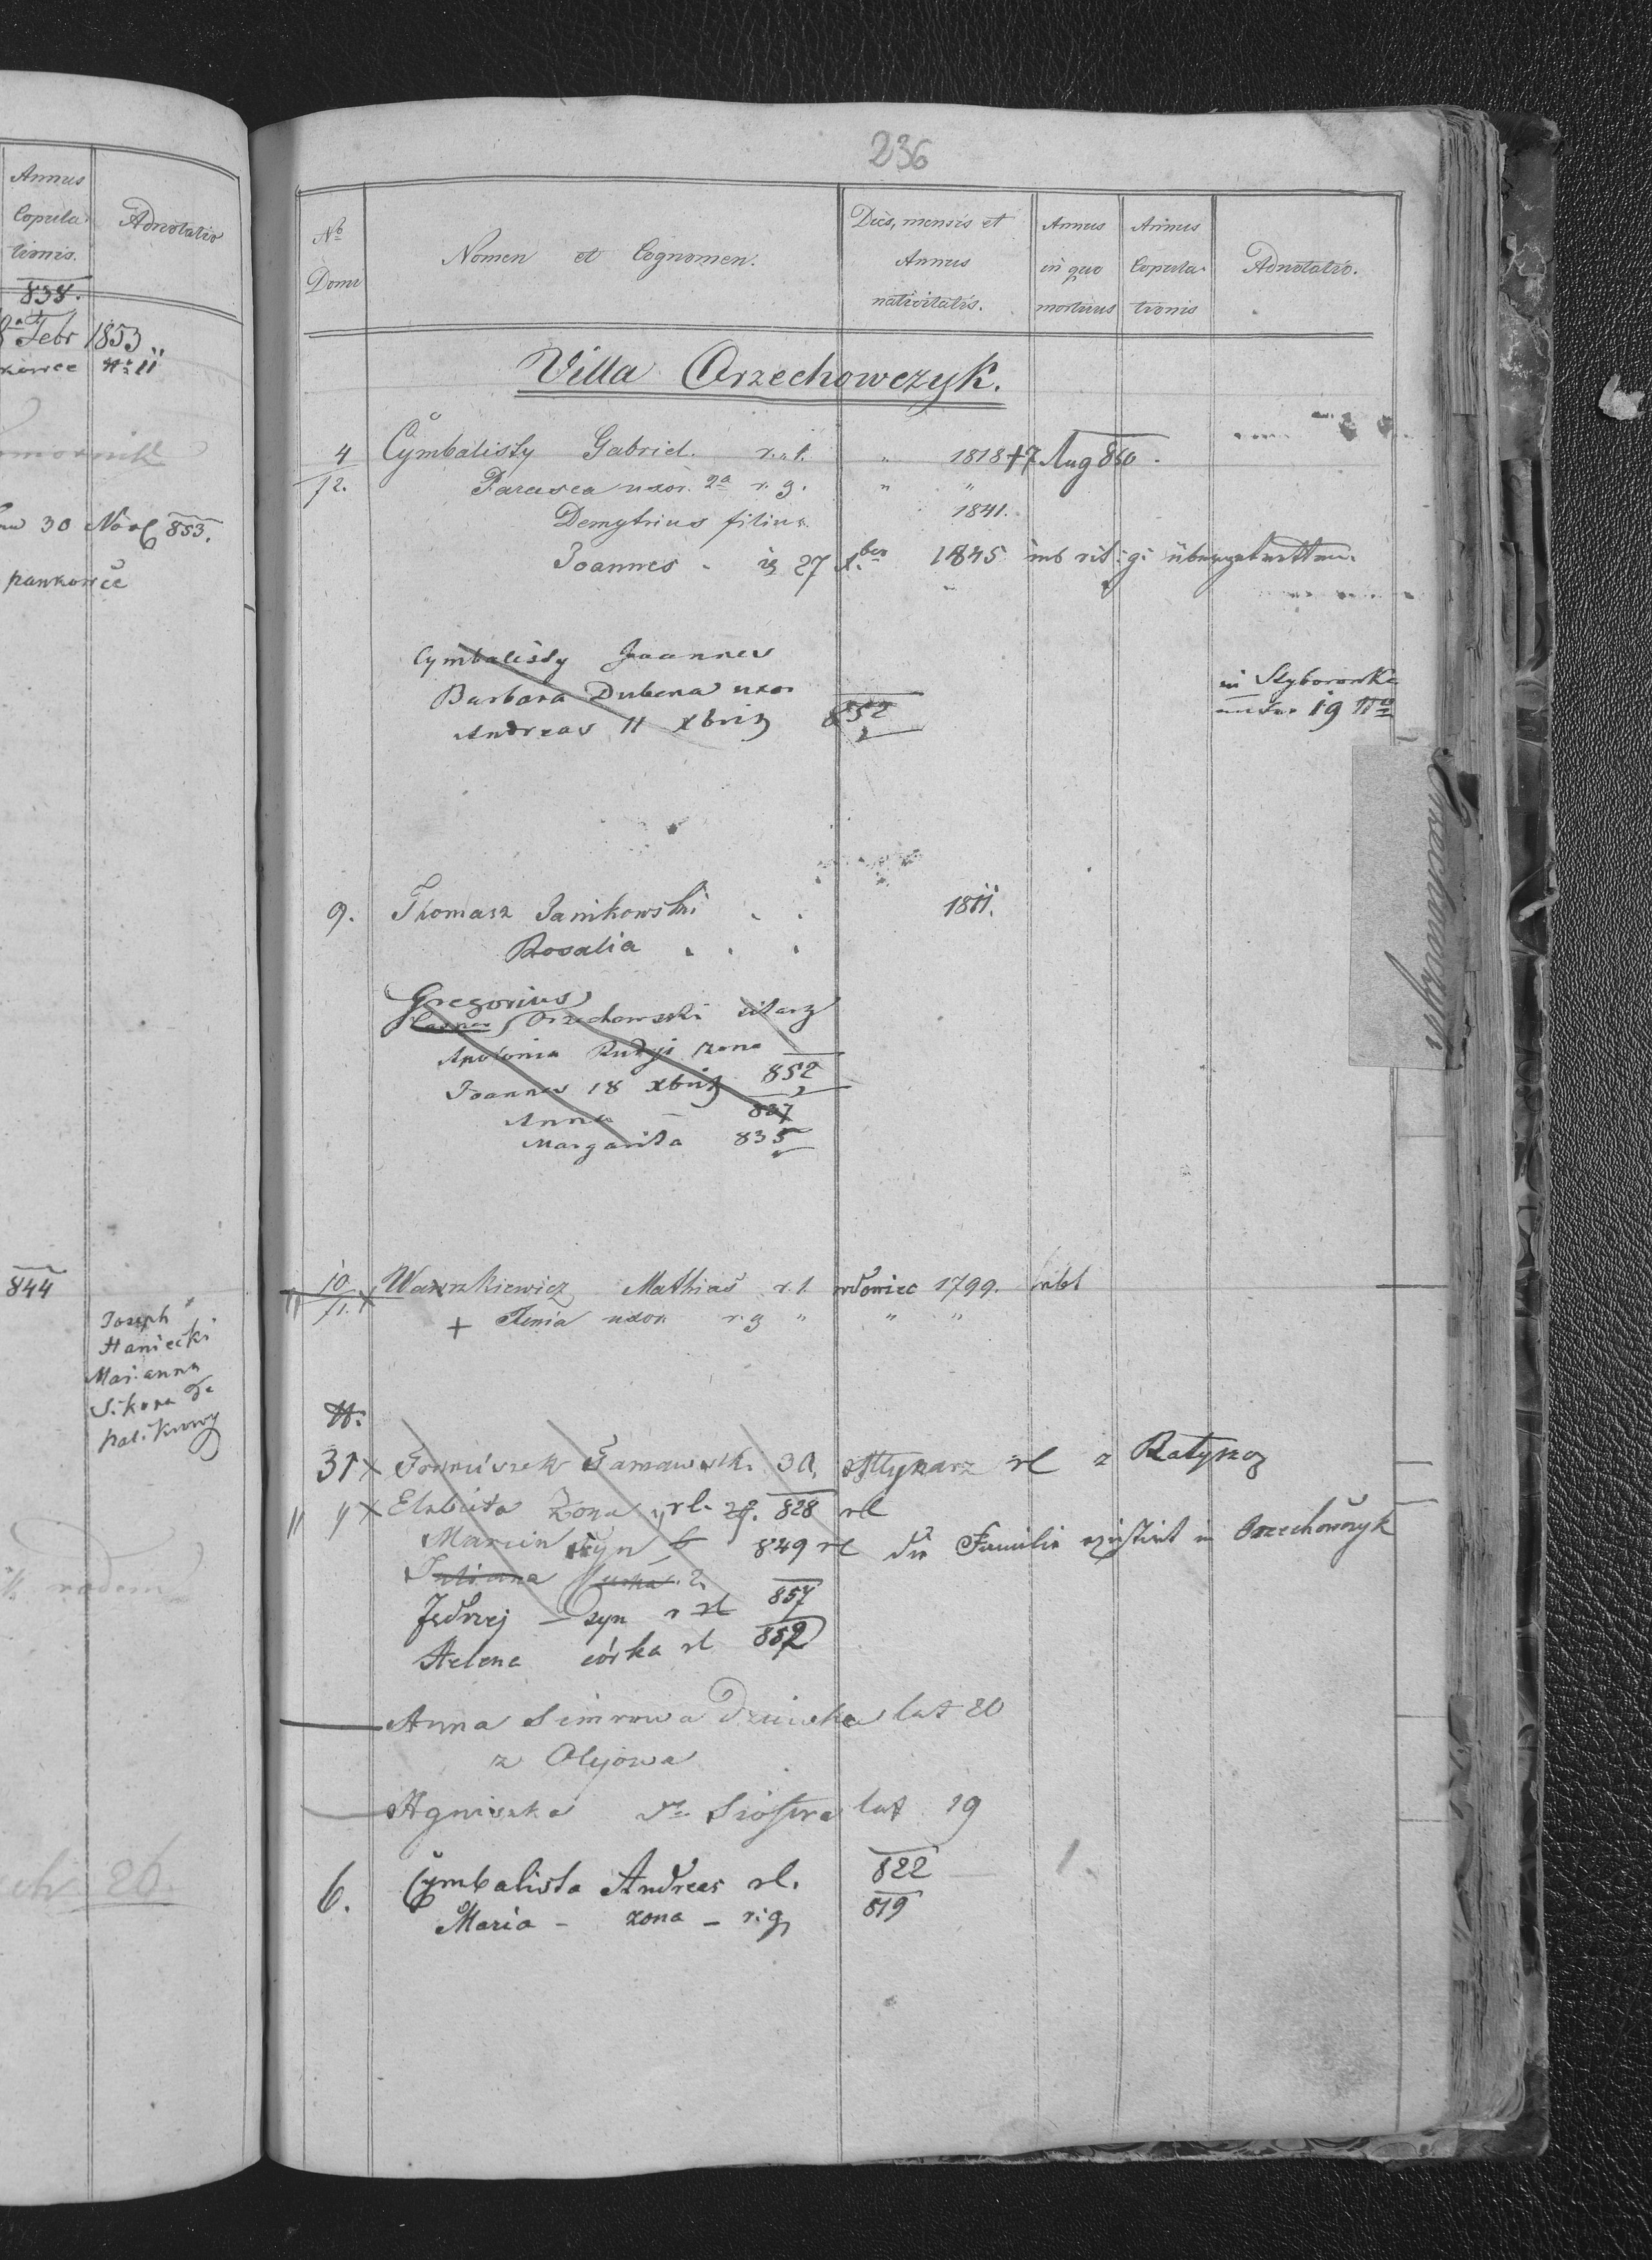 Annus
Copula-
tionis.
Adnotatio
838.
Febr 1853
No 11
30 Nov 853.
pankowce
844
Joseph
Haniecki
Marianna
Sikora de
palikrowy
radem
26
236
No Domi
Nomen et Cognomen.
Dies, mensis et Annus nativitatis.
Annus in quo mortuus
Annus Copula-tionis
Adnotatio.
Villa Orzechowczyk.
4 Cymbalisty Gabriel. r. l. " 1818 +7 Aug 860.
72. Parasca uxor 2a r. g. " "
Demytrius filius. 1841.
Joannes 27 1845 rit. g.
Cymbalisty Joannes
Barbara Dubena uxor
Andreas 11 xbris 852
in Styborowka
19
9. Thomasz Janikowski 1811.
Rosalia
Gregorius
Orzechowski
Apolonia Rudyj żona
Joannes 18 xbris 852
Anna - 837
Margarita 835
Orzechowczyk
10 Wawrzkiewicz Mathias r. l. wdowiec 1799.
71. x + Xenia uxor r. g " " "
N:
31 x Franciszek 30 Młynarz rl z Ratyszcz
x Elzbieta Zona rl. 828 rl
Marcin syn 849 rl die Familie existirt in Orzechowczyk
Juliana
Jędrzej - syn rl 857
Helena córka rl 859
Anna dziewka lat 20
z Olejowa
Agnieszka Siostra lat 19
6. Cymbalista Andreas rl. 822 1.
Maria - zona - r. g. 819